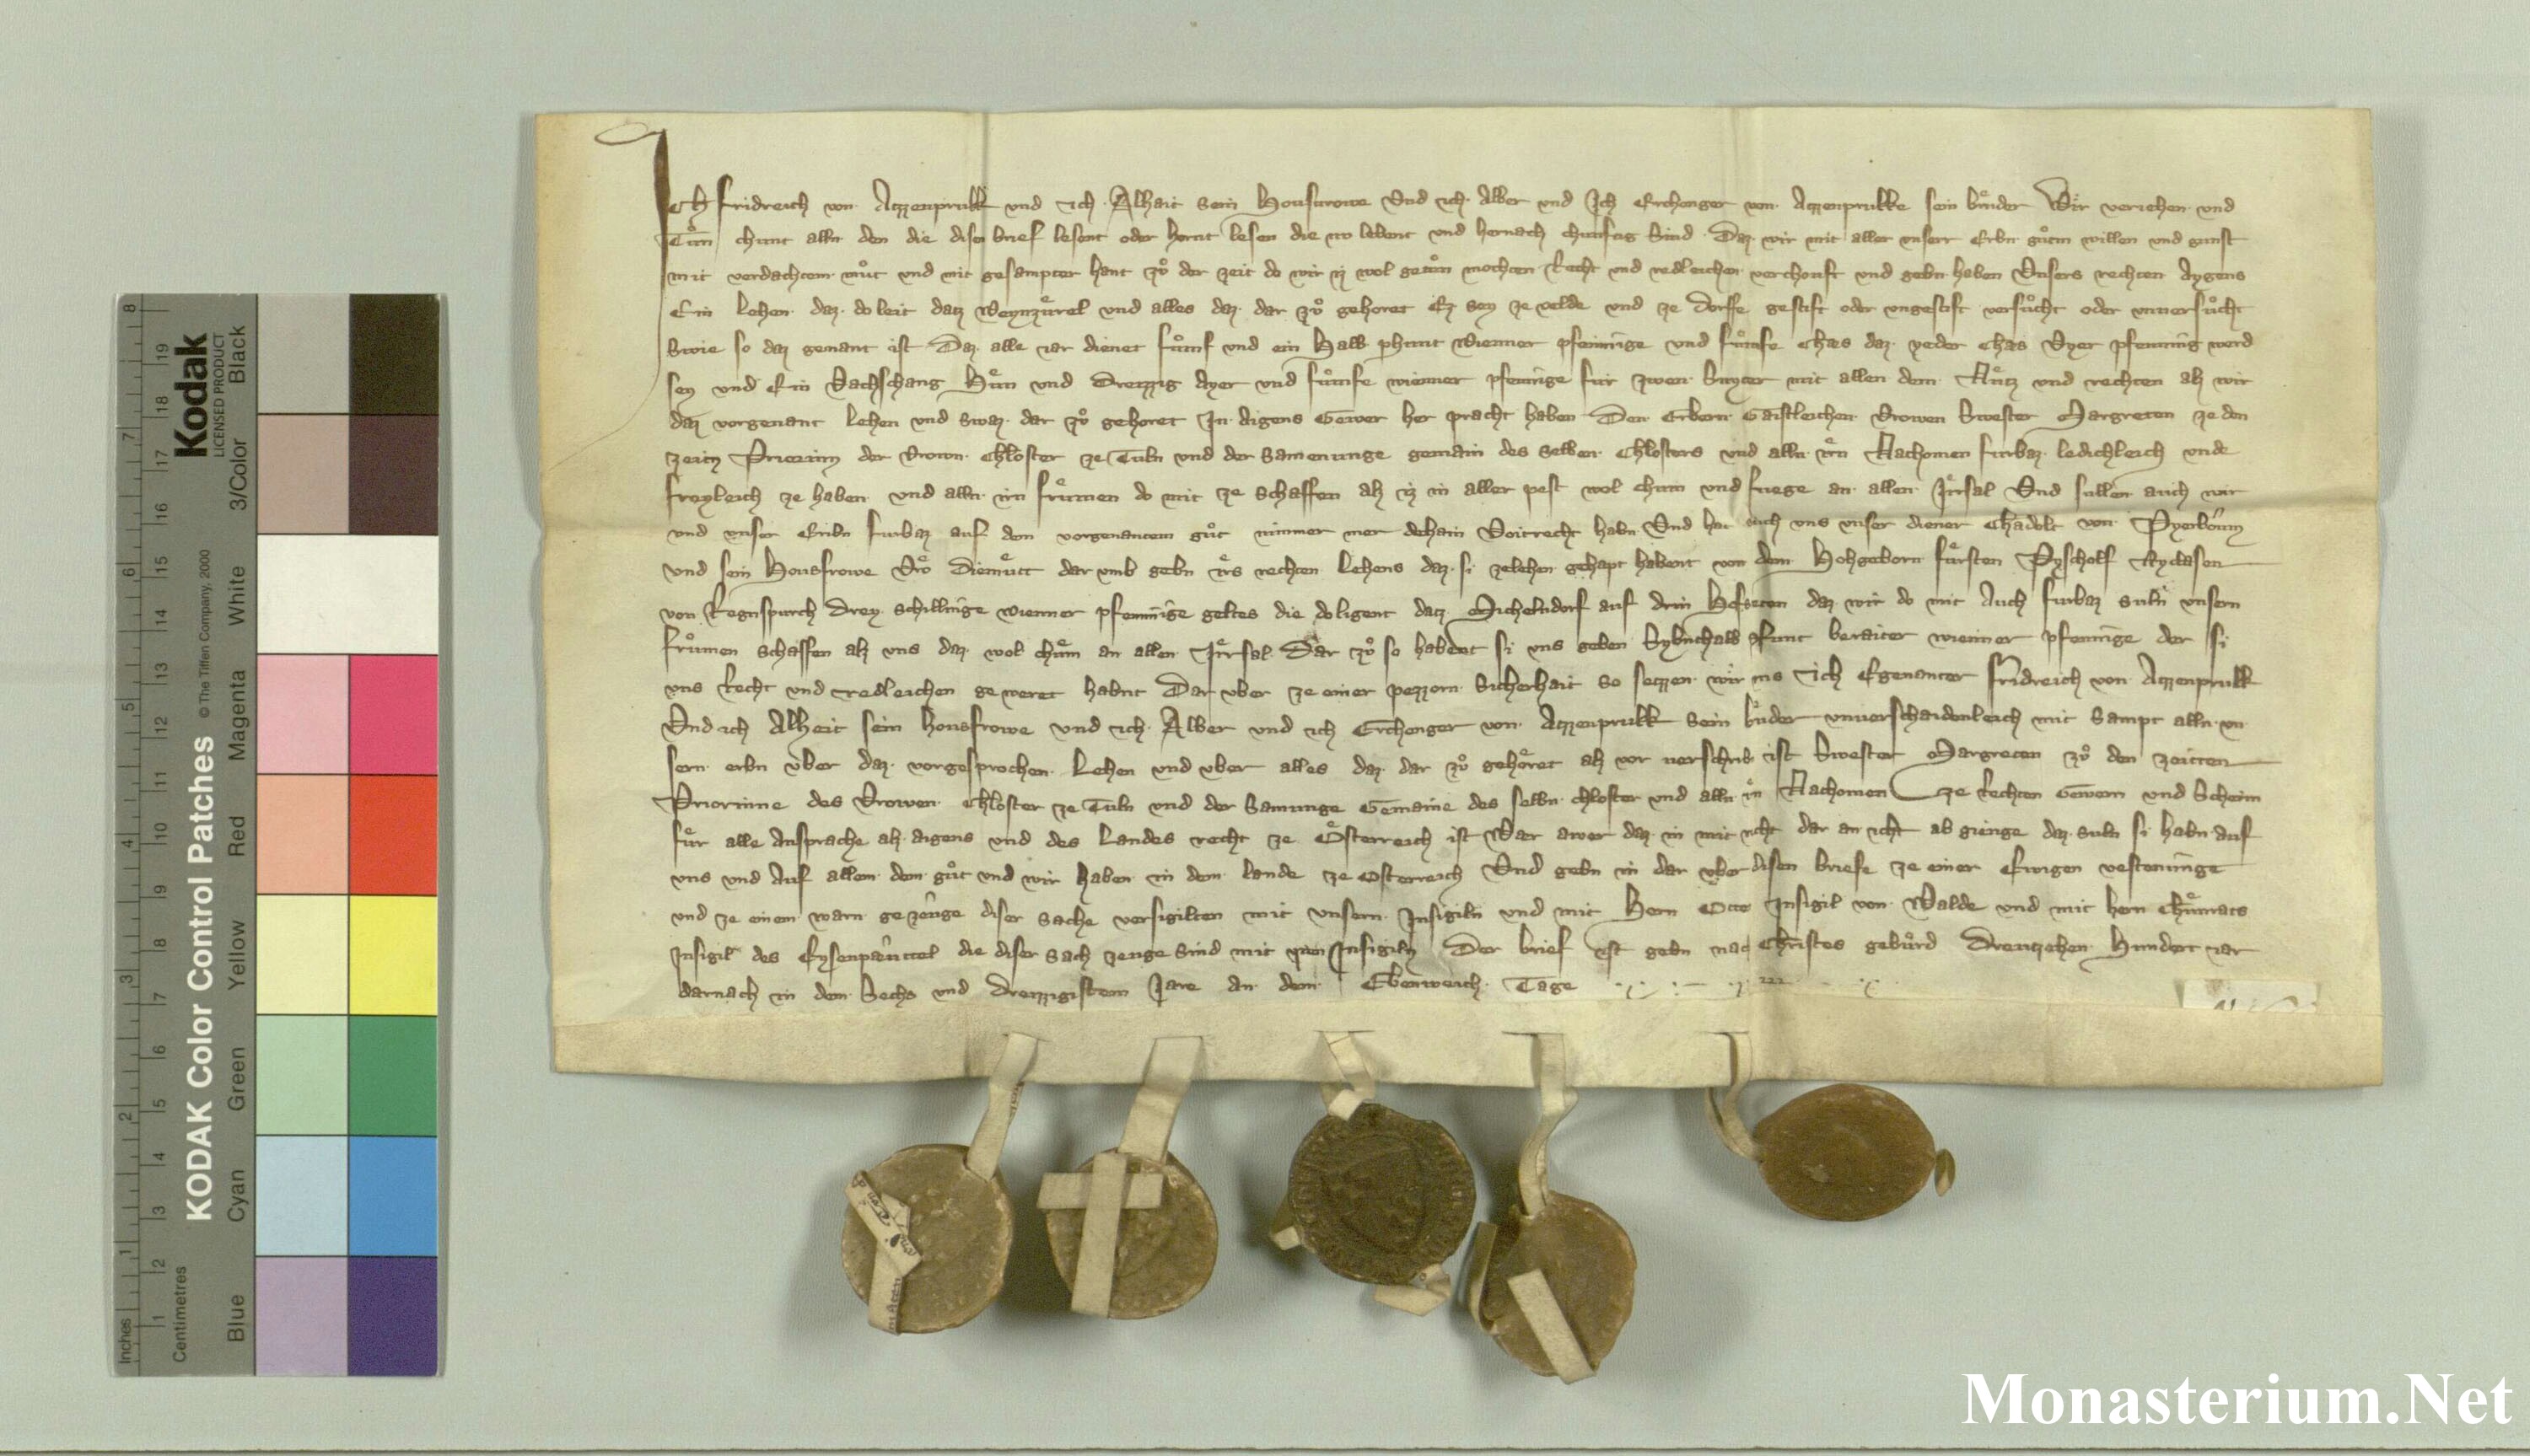 Ich fridreich von Aczzenprukk und ich Alhait sein Housurowe Vnd ich Alber und Ich Erchenger von Aczzenprukke sein bruͤder Wir veriehen und
Tuͦn chunt alln den die disen brief lesent oder hornt lesen die nv lebent und hernach chunftig sind Daz wir mit aller vnserr Erbn guͦtm willen und gunst
mit verdachtem muͦt und mit gesampter hant zuͦ der zeit do wir iz wol getuͦn mochten Recht und redleichen verchouft und gebn haben Vnsers rechten Aygens
Ein Lehen daz do leit datz Weynzuͤrel und alles daz dar zuͦ gehoret Ez sey ze velde und ze dorffe gestift oder ungestift versuͦcht oder vnuersuͦcht
Swie so daz genant ist Daz alle iar dienet fuͦmf und ein Halb phunt Wienner pfenninge und fuͦmfe Chaes daz yeder Chaes Vyer pfenning werd
sey und Ein Vachschang Huͤn und Dreizzig Ayer und fuͦmfe wienner pfenninge fur zwen Snyter mit allen dem Nuͤtz und rechten alz wir
daz vorgenant Lehen und swaz dar zuͦ gehoret In Aigens Gewer her pracht haben Den Erbern Gaistleichen Vrowen Swester Margreten ze den
zeitn Priorinn der Vrowen Chloster ze Tuln und der Samenunge gemain des selben Chlosters und alln irn Nachomen furbaz ledichleich unde
freyleich ze haben und alln irn frumen do mit ze schaffen alz iz in aller pest wol chum und fuege an allen Irrsal Vnd sullen auch wir
und unser Eribn furbaz auf dem vorgenantem guͦt nimmer mer dehain Voitrecht habn Vnd hat auch uns unser diener Chadolt von Pyerboum
und sein Housfrowe Vro Diemuͤt dar umb gebn irs rechten Lehens daz si zelehen gehapt habent von dem Hohgeborn fuͤrsten Pyscholf Nyclasen
von Regnspurch Drey schillinge wienner pfenninge geltes die do ligent datz Michelndorf auf drin Hofsteten daz wir do mit Auch furbaz suln unsern
fruͦmen schaffen alz uns daz wol chuͤm an allen Irrsal Dar zuͦ so habent si uns geben Sybnchalb pfunt beraiter wienner pfenninge der si
uns Recht und redleichen gewert habnt Dar uber ze einer pezzern Sicherhait so setzzen wir uns Ich Egenanter fridreich von Aczzenprukk
Vnd ich Alheit sein housfrowe und ich Alber und ich Erchenger von Aczzenprukk sein bruͤder unuerschaidenleich mit sampt alln un
sern erbn uber daz vorgesprochen Lehen und uber alles daz dar zuͦ gehoͤret alz vor uerschribn ist Swester Margreten zuͦ den zeitten
Priorinne des Vrowen Chloster ze Tuln und der Samnunge Gemaine des selbn chloster und alln irn Nachomen ze Rechten Gewern und Scherm
fuͤr alle Ansprache alz Aigens und des Landes recht ze Oͤsterreich ist War awer daz in mit icht dar an icht ab gienge daz suln si habn auf
uns und Auf allem dem guͦt und wir haben in dem Lande ze Osterreich Vnd gebn in dar uber disen briefe ze einer Ewigen vestenunge
und ze einem warn gezeuge diser sache versigilten mit unsern Insigiln und mit Hern Otte Insigil von Walde und mit hern Chuͤnrats
Insigil des Eysenpeuttel die diser sach zeuge sind mit iren Insigiln Der brief ist gebn nach Christes gebuͦrd Dreutzehen Hundert iar
darnach in dem Sechs und Dreizzigistem Jare an dem Ebenweich Tage
Kodak
LICENSED PRODUCT
KODAK Color Control Patches
© The Tiffen Company, 2000
Blue Cyan Green Yellow Red Magenta White 3/Color Black
Inches 1 2 3 4 5 6 7 8
Centimetres 1 2 3 4 5 6 7 8 9 10 11 12 13 14 15 16 17 18 19
Monasterium.Net